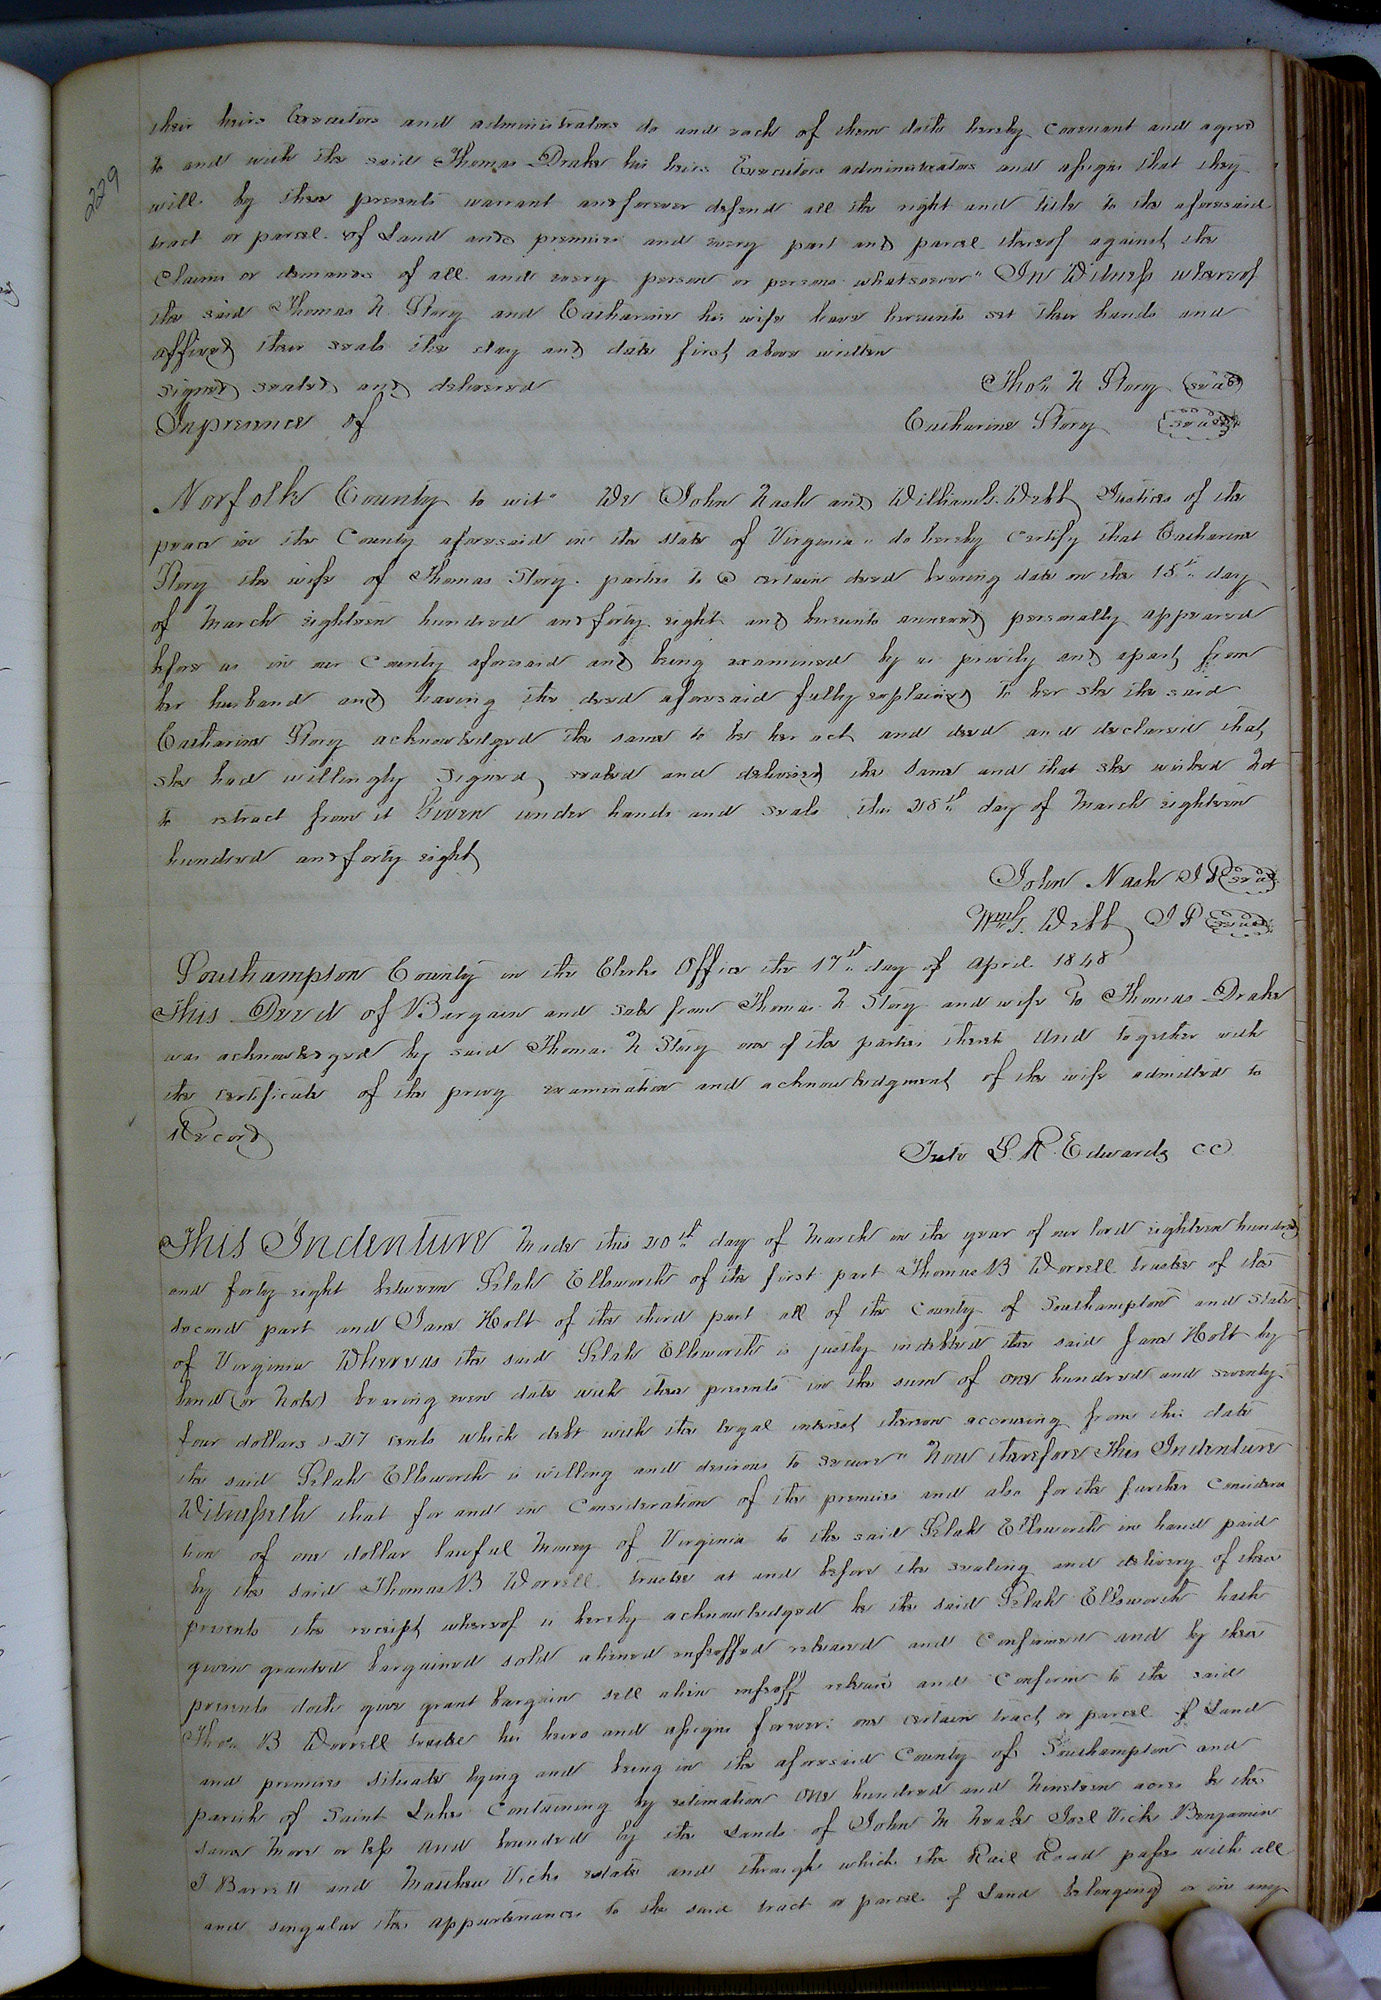 229
their heirs Executors and administrators do and each of them doth hereby covenant and agree
to and with the said Thomas Drake his heirs Executors administrators and assigns that they
will by these presents warrant and forever defend all the right and title to the aforesaid
tract or parcel of Land and premises and every part and parcel thereof against the
Claims or demands of all and every person or persons whatsoever" In Witness whereof
the said Thomas N Story and Catharine his wife have hereunto set their hands and
affixed their seals the day and date first above written
signed sealed and delivered Thos N Story (seal)
Inpresence of Catharine Story (seal)
Norfolk County to wit" We John Nash and William G. Webb Justices of the
peace in the County aforesaid in the state of Virginia" do hereby certify that Catharine
Story the wife of Thomas Story. parties to a certain deed bearing date on the 18th day
of March eighteen hundred and forty eight and hereunto annexed personally appeared
before us in our County aforesaid and being examined by us privily and apart from
her husband and having the deed aforesaid fully explained to her she the said
Catharine Story acknowledged the same to be her act and deed and declared that
she had willingly signed, sealed and delivered the same and that she wished Not
to retract from it Given under hands and seals this 28th day of March eighteen
hundred and forty eight
John Nash J P (seal)
Wm G. Webb J P (seal)
Southampton County in the Clerks Office the 17th day of April 1848
This Deed of Bargain and sale from Thomas N Story and wife To Thomas Drake
was acknowledged by said Thomas N Story one of the parties thereto And together with
the certificate of the privy examination and acknowledgment of the wife admitted to
Record
Teste L. R. Edwards CC
This Indenture Made this 20th day of March in the year of our lord eighteen hundred
and forty eight between Selah Ellsworth of the first part Thomas B Worrell trustee of the
second part and Jane Holt of the third part all of the County of Southampton and State
of Virginia Whereas the said Selah Ellsworth is justly indebted the said Jane Holt by
bond (or Note) bearing even date with these presents in the sum of one hundred and seventy
four dollars & 27 cents which debt with the legal interest thereon accruing from this date
the said Selah Ellsworth is willing and desirous to secure" Now therefore This Indenture
Witnesseth that for and in Consideration of the premises and also for the further Considera
tion of one dollar lawful Money of Virginia to the said Selah Ellsworth in hand paid
by the said Thomas B Worrell trustee at and before the sealing and delivery of these
presents the receipt whereof is hereby acknowledged he the said Selah Ellsworth hath
given granted bargained sold aliened enfeoffed released and Confirmed and by these
presents doth give grant bargain sell alien enfeoff release and Confirm to the said
Thos B Worrell trustee his heirs and assigns forever: one certain tract or parcel of Land
and premises situate lying and being in the aforesaid County of Southampton and
parish of Saint Lukes Containing by estimation One hundred and Nineteen acres be the
same More or less And bounded by the Lands of John M Joel Vick Benjamin
J Barrett and Matthew Vicks estate and through which the Rail Road passes with all
and singular the appurtenances to the said tract or parcel of Land belonging or in any